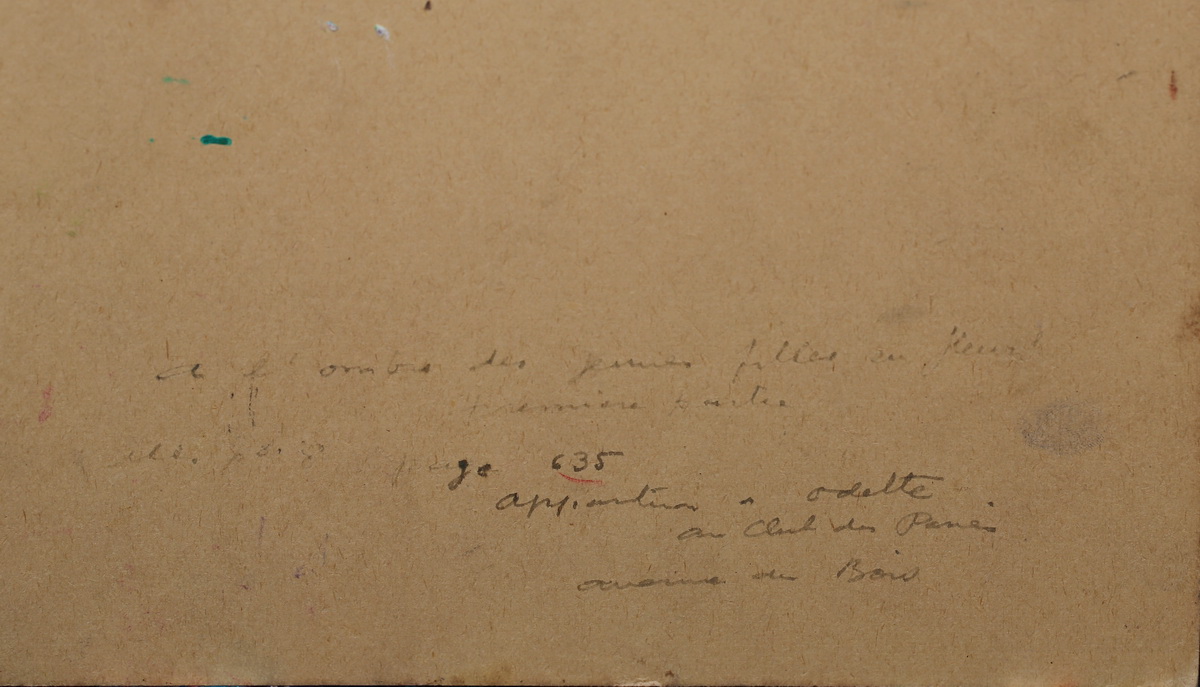 A l'ombre des jeunes filles en fleurs
première partie
page 635
apparition odette
au Club des Panés
avenue du Bois